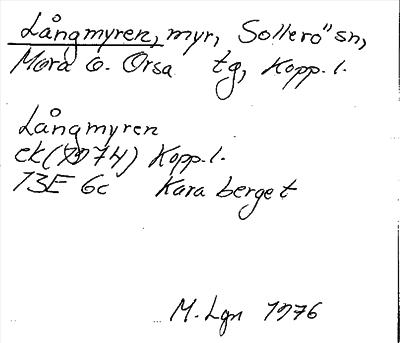 Långmyren, myr, Sollerö sn,
Mora o. Orsa tg, Kopp. l.
Långmyren
ek (1974) Kopp. l.
13E 6c Kara berget
M. Lgn 1976